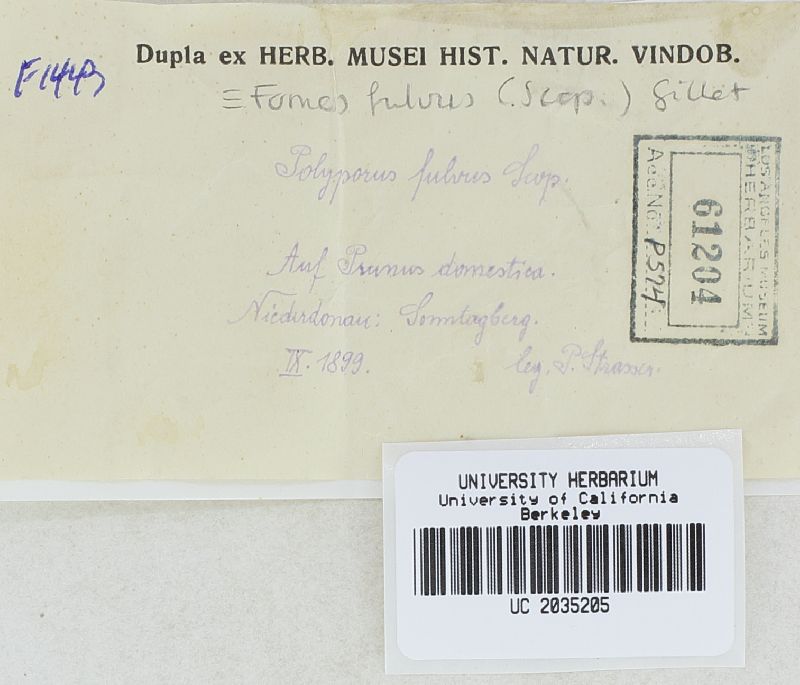 Dupla ex HERB. MUSEI HIST. NATUR. VINDOB.
F1443
≡ Fomes fulvus (Scop.) Gillet
Polyporus fulvus Scop.
Auf Prunus domestica.
Niederdonau: Sonntagberg.
IX. 1899. leg. P. Strasser.
LOS ANGELES MUSEUM
HERBARIUM
61204
Acc. No. P574
UNIVERSITY HERBARIUM
University of California
Berkeley
UC 2035205